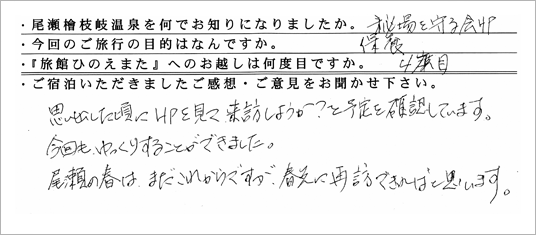 ・尾瀬檜枝岐温泉を何でお知りになりましたか。 秘湯を守る会HP
・今回のご旅行の目的はなんですか。 保養
・『旅館ひのえまた』へのお越しは何度目ですか。 4度目
・ご宿泊いただきましたご感想・ご意見をお聞かせ下さい。
思い出した頃にHPを見て来訪しようか?と予定を確認しています。
今回も、ゆっくりすることができました。
尾瀬の春は、まだこれからですが、春先に再訪できればと思います。